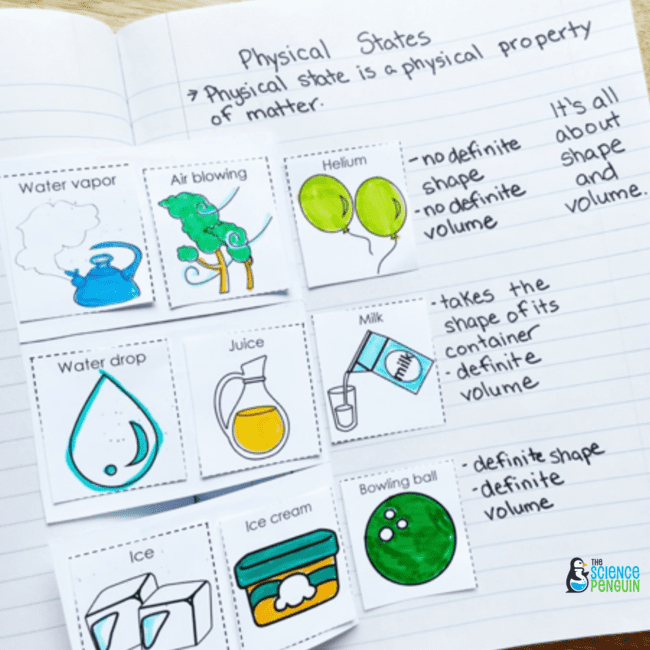 Physical States
→ Physical state is a physical property
of matter.
It's all
about
shape
and
volume.
Water vapor
Air blowing
Helium
-no definite
shape
-no definite
volume
Water drop
Juice
Milk
milk
-takes the
shape of its
container
-definite
volume
Ice
Ice cream
Bowling ball
-definite shape
-definite
volume
THE
SCIENCE
PENGUIN